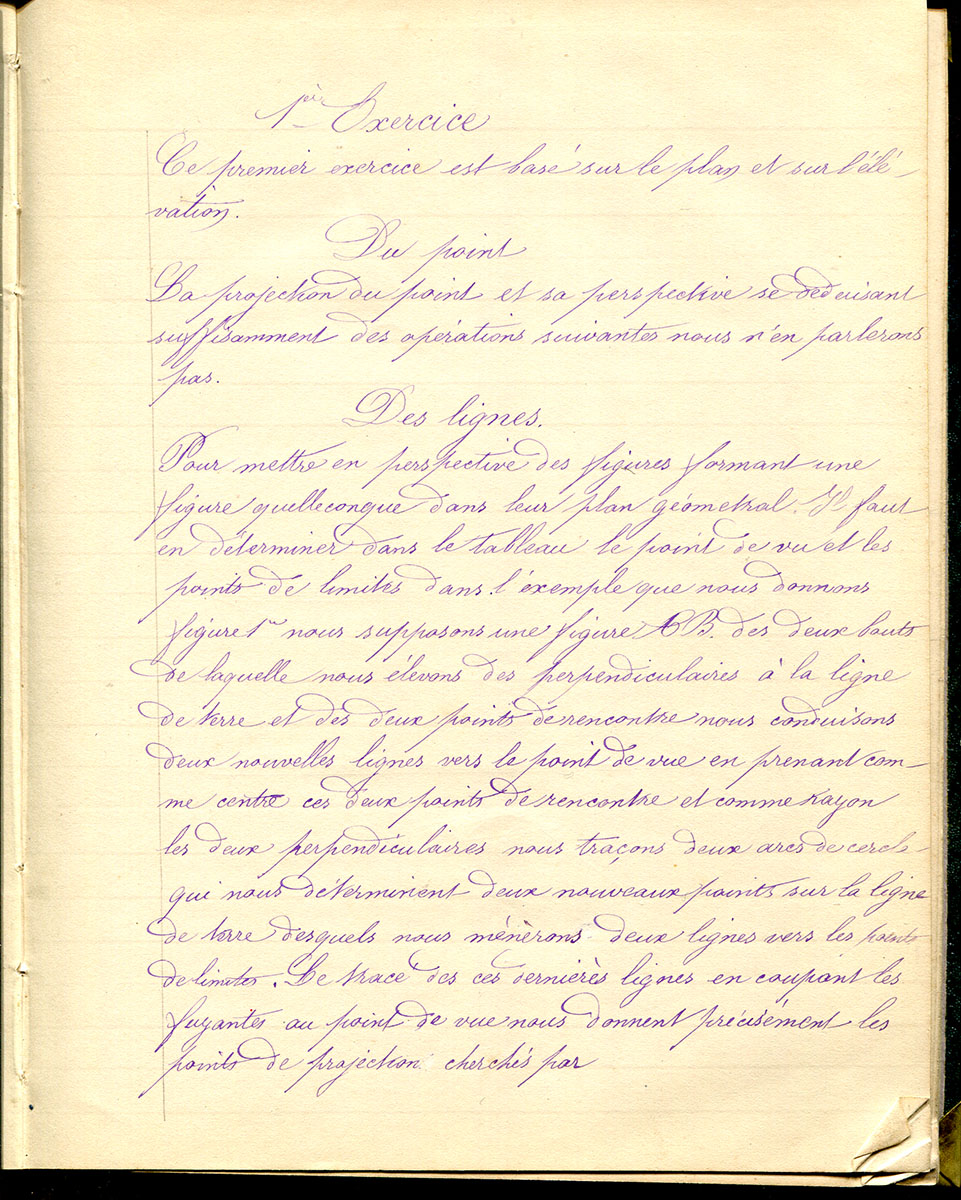 1er Exercice
Ce premier exercice est basé sur le plan et sur l'élé-
vation.
Du point
La projection du point et sa perspective se déduisant
suffisamment des opérations suivantes nous n'en parlerons
pas.
Des lignes.
Pour mettre en perspective des figures formant une
figure quelleconque dans leur plan géometral. Il faut
en déterminer dans le tableau le point de vu et les
points de limites dans l'éxemple que nous donnons
figure 1re nous supposons une figure AB. des deux bouts
de laquelle nous élevons des perpendiculaires à la ligne
de terre et des deux points de rencontre nous conduisons
deux nouvelles lignes vers le point de vue en prenant com-
me centre ces deux points de rencontre et comme rayon
les deux perpendiculaires nous traçons deux arcs de cercle
qui nous déterminent deux nouveaux points sur la ligne
de terre desquels nous ménèrons deux lignes vers les points
de limites. Le tracé des ces dernières lignes en coupant les
fuyantes au point de vue nous donnent précisément les
points de projection cherchés par